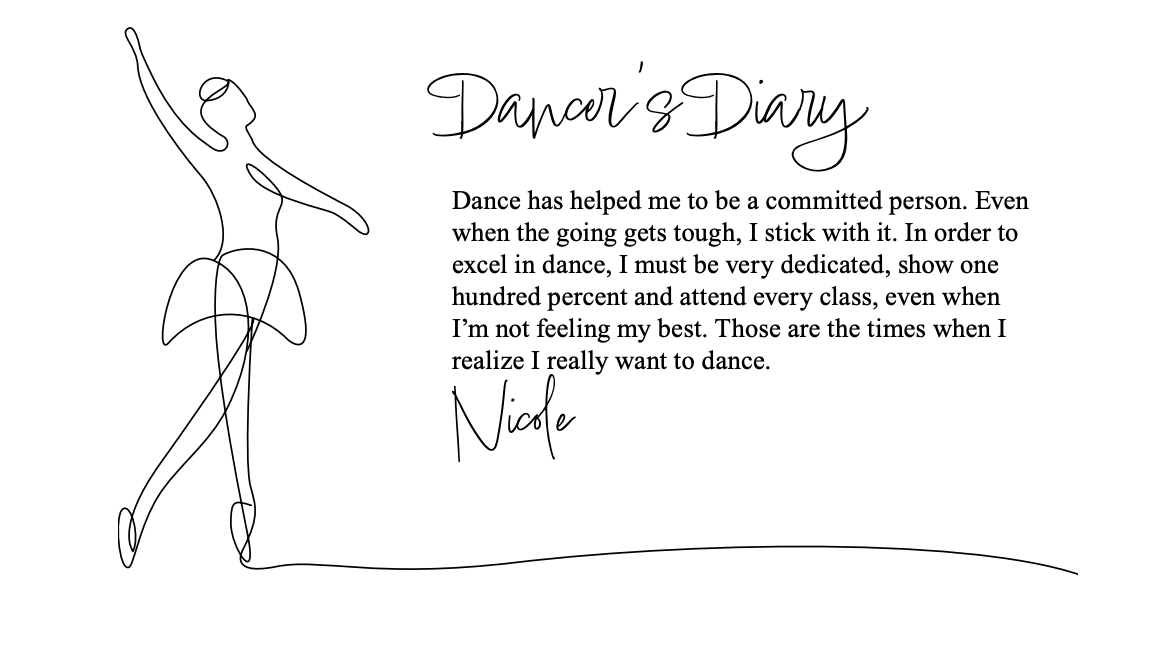 Dancer's Diary
Dance has helped me to be a committed person. Even
when the going gets tough, I stick with it. In order to
excel in dance, I must be very dedicated, show one
hundred percent and attend every class, even when
I’m not feeling my best. Those are the times when I
realize I really want to dance.
Nicole